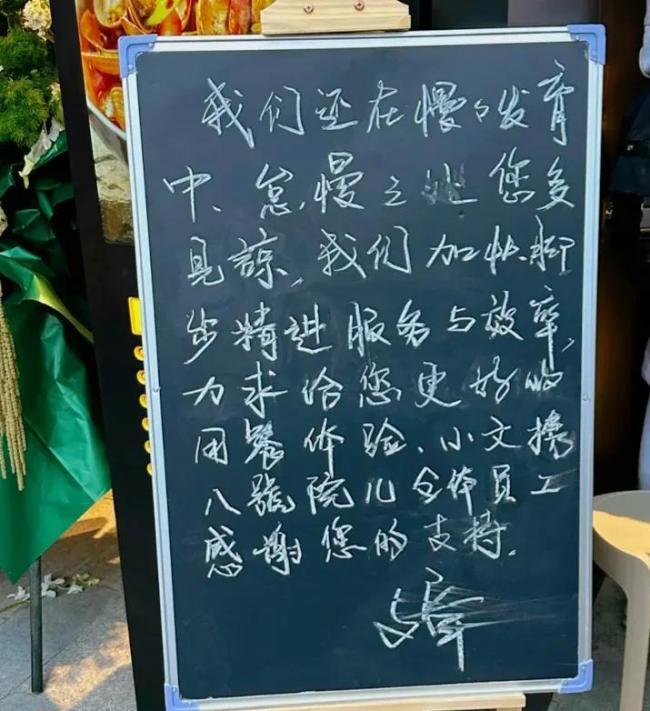 我们还在慢々发育
中、怠慢之处您多
見諒，我们加快脚
步精进服务与效率，
力求给您更好的
用餐体验、小文
八號院儿全体员工
感谢您的支持.